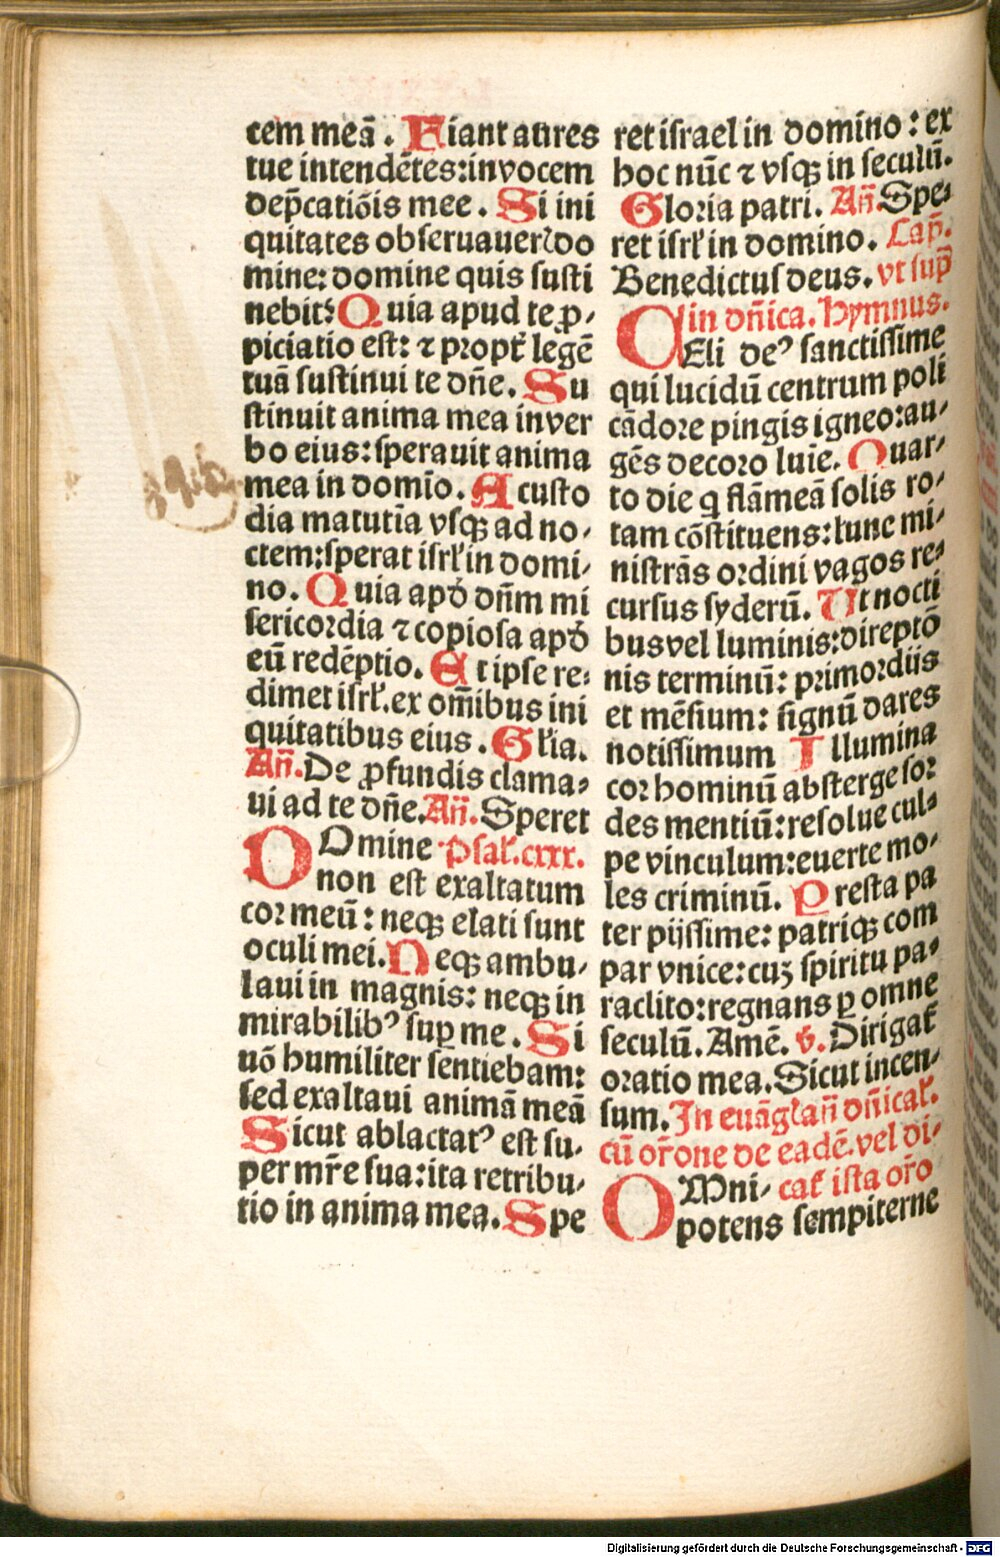 cem meā. Fiant aures
tue intendētes: in vocem
dep̄catiōis mee. Si ini
quitates obseruauerꝭ do
mine: domine quis susti
nebit? Quia apud te ꝓ⸗
piciatio est: ⁊ propt̄ legē
tuā sustinui te dn̄e. Su
stinuit anima mea in ver
bo eius: sperauit anima
mea in domīo. A custo
dia matutīa vsqꝫ ad no⸗
ctem: sperat isrł in domi⸗
no. Quia apď dn̄m mi
sericordia ⁊ copiosa apď
eū redēptio. Et ipse re⸗
dimet isrł. ex om̄ibus ini
quitatibus eius. Głia.
An̄. De ꝓfundis clama⸗
ui ad te dn̄e. An̄. Speret
DOmine Psał. cxxx.
non est exaltatum
cor meū: neqꝫ elati sunt
oculi mei. Neqꝫ ambu⸗
laui in magnis: neqꝫ in
mirabilibꝰ suꝑ me. Si
nō humiliter sentiebam:
sed exaltaui animā meā
Sicut ablactatꝰ est su⸗
per mr̄e sua: ita retribu⸗
tio in anima mea. Spe
ret israel in domino: ex
hoc nūc ⁊ vsqꝫ in seculū.
Gloria patri. An̄. Spe⸗
ret isrł in domino. Cap̄.
Benedictus deus. vt sup̄
in dn̄ica. Hymnus.
CEli deꝰ sanctissime
qui lucidū centrum poli
cādore pingis igneo: au⸗
gēs decoro luīe. Quar⸗
to die q flāmeā solis ro⸗
tam cōstituens: lune mi⸗
nistrās ordini vagos re⸗
cursus syderū. Ut nocti
bus vel luminis: direptō
nis terminū: primordiis
et mēsium: signū dares
notissimum Illumina
cor hominū absterge sor
des mentiū: resolue cul⸗
pe vinculum: euerte mo⸗
les criminū. Presta pa
ter pijssime: patriqꝫ com
par vnice: cuꝫ spiritu pa⸗
raclito: regnans ꝑ omne
seculū. Amē. v̄. Dirigat̄
oratio mea. Sicut incen⸗
sum. In euāgł. an̄ dn̄icał.
cū or̄one de eadē. vel di⸗
OMni⸗ cał ista or̄o
potens sempiterne
Digitalisierung gefördert durch die Deutsche Forschungsgemeinschaft - DFG